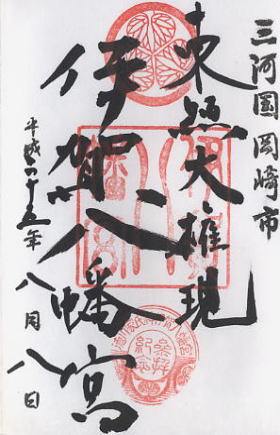 三河国岡崎市
東照大権現
伊賀八幡宮
平成二十五年八月八日